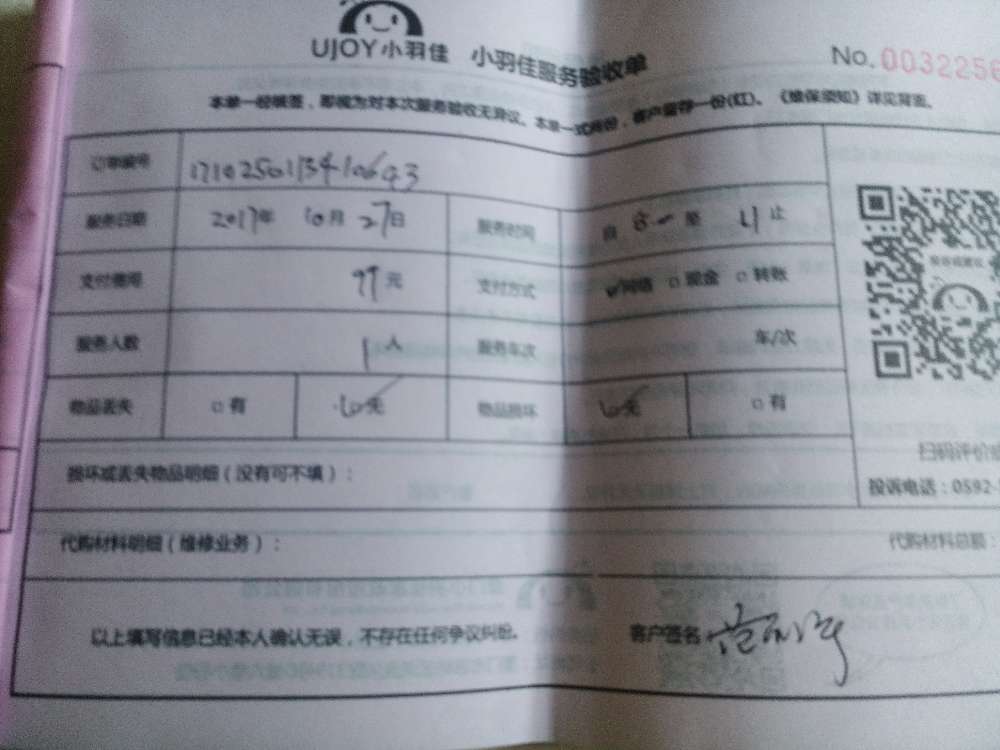 UJOY小羽佳 小羽佳服务验收单
No. 0032256
本单一经横签，即视为对本次服务验收无异议。本单一式两份，客户留存一份(红)。《维保须知》详见背面。
订单编号
服务日期 2017年 10月 27日 服务时间 自 8 至 11 止
支付费用 99元 支付方式 网络 现金 转账
服务人数 1人 服务车次 车/次
物品丢失 有 无 物品损坏 无 有
损坏或丢失物品明细（没有可不填）：
扫码评价
投诉电话：0592-
代购材料明细（维修业务）： 代购材料总额：
以上填写信息已经本人确认无误，不存在任何争议纠纷。 客户签名